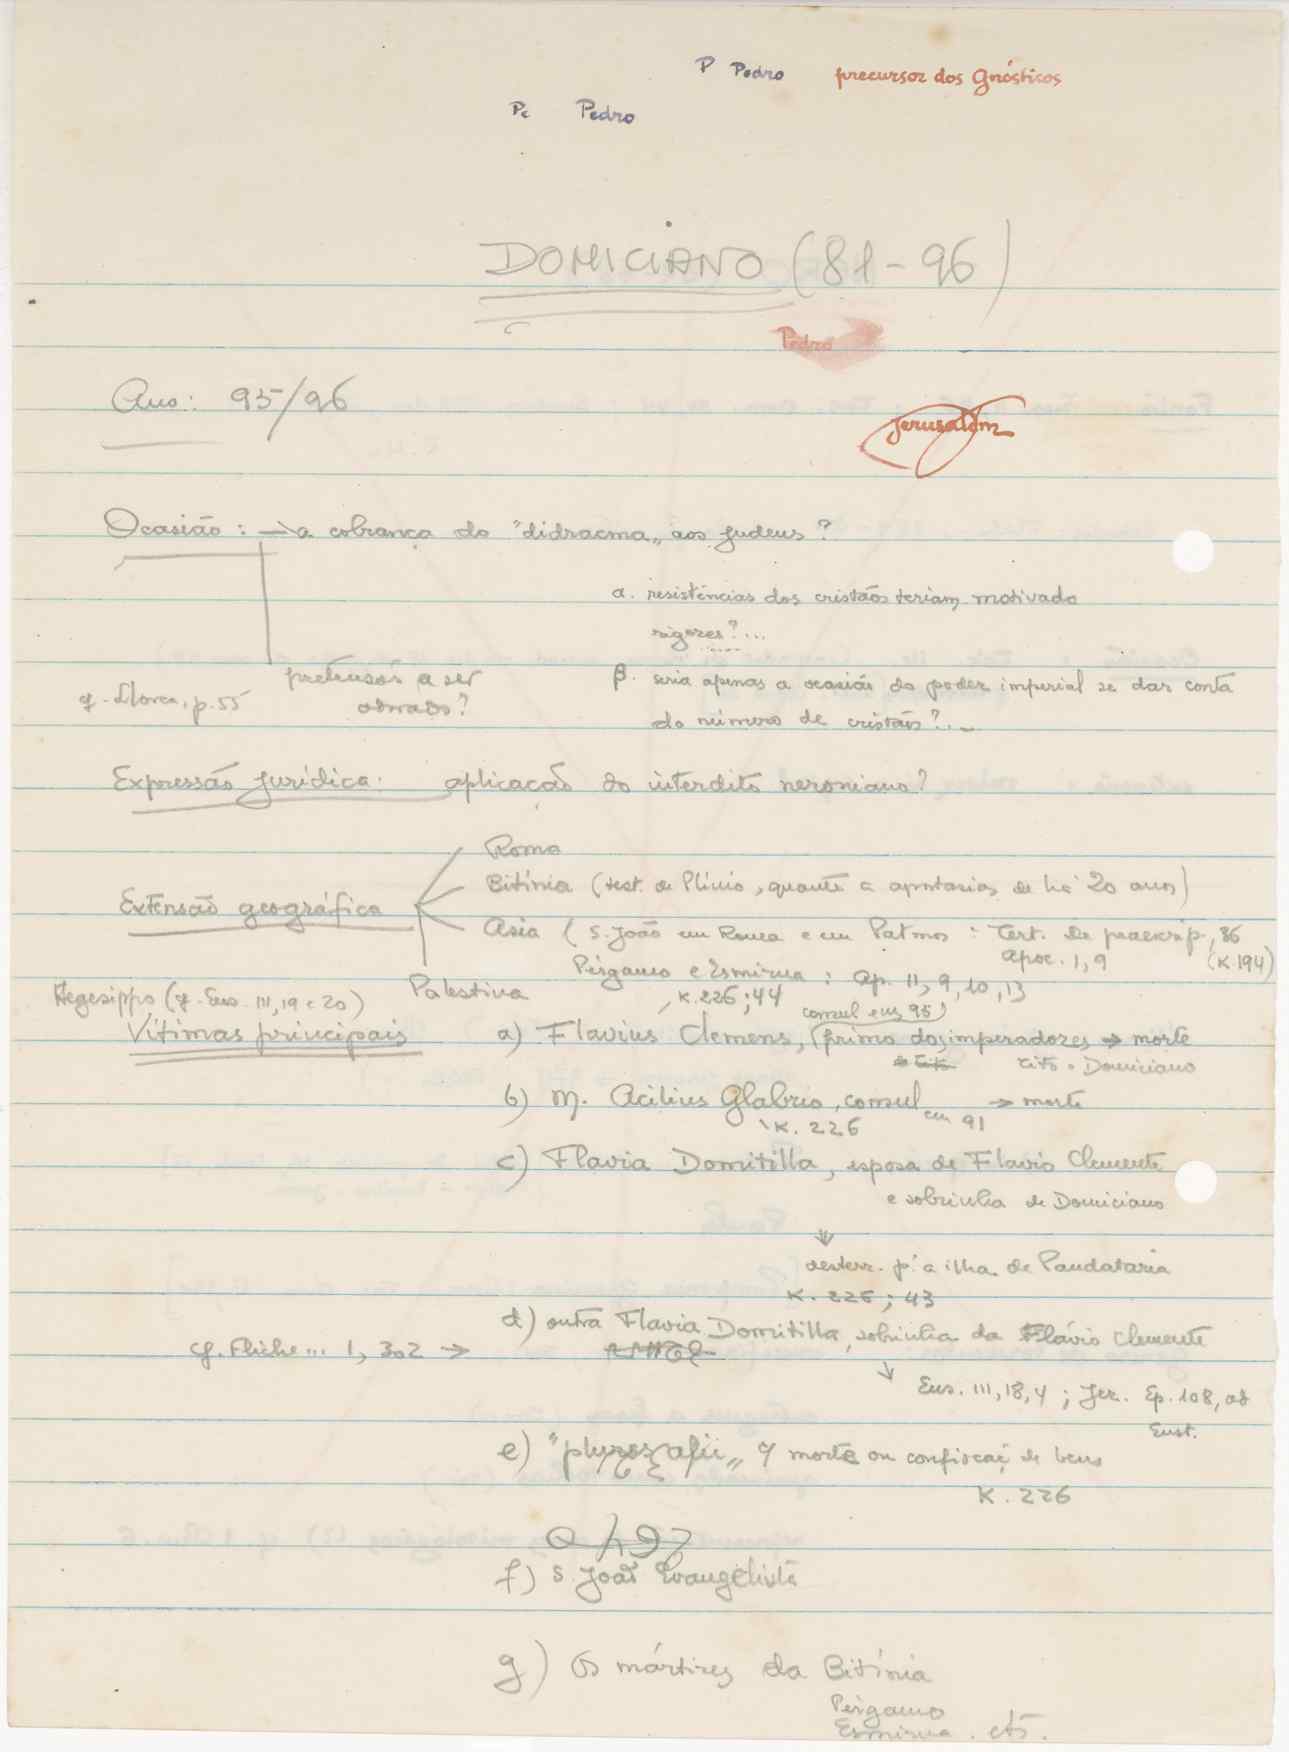 P Pedro precursor dos Gnósticos
Pe Pedro
DOMICIANO (81-96)
Pedro
Ano: 95/96
Jerusalém
Ocasião: → a cobrança do "didracma„ aos judeus?
α. resistências dos cristãos teriam motivado
rigores?...
pretensões a ser
β. seria apenas a ocasião do poder imperial se dar conta
cf. Llorca, p. 55
adorado?
do número de cristãos?...
Expressão jurídica: aplicação do interdito neroniano?
Roma
Bitínia (test. de Plínio, quanto a apostasias de há 20 anos)
Extensão geográfica
Asia (S. João em Roma e em Patmos: Tert. De praescrip., 36
Apoc. 1, 9 (K 194)
Pérgamo e Esmirna: Ap. 11, 9, 10, 13
Palestina
Hegesippo (cf. Eus. III, 19 e 20)
K. 226; 44
consul em 95)
Vítimas principais
a) Flavius Clemens, (primo dos imperadores → morte
Tito e Domiciano
b) M. Acilius Glabrio, consul em 91 → morte
K. 226
c) Flavia Domitilla, esposa de Flavio Clemente
e sobrinha de Domiciano
↓
desterr. p.ª a ilha de Pandataria
K. 226; 43
d) outra Flavia Domitilla, sobrinha da Flávio Clemente
cf. Fliche... 1, 302 →
↓ Eus. III, 18, 4; Jer. Ep. 108, ad
Eust.
e) "plures alii„ cf morte ou confiscaç de bens
K. 226
f) S. João Evangelista
g) Os mártires da Bitínia
Pérgamo
Esmirna. etc.